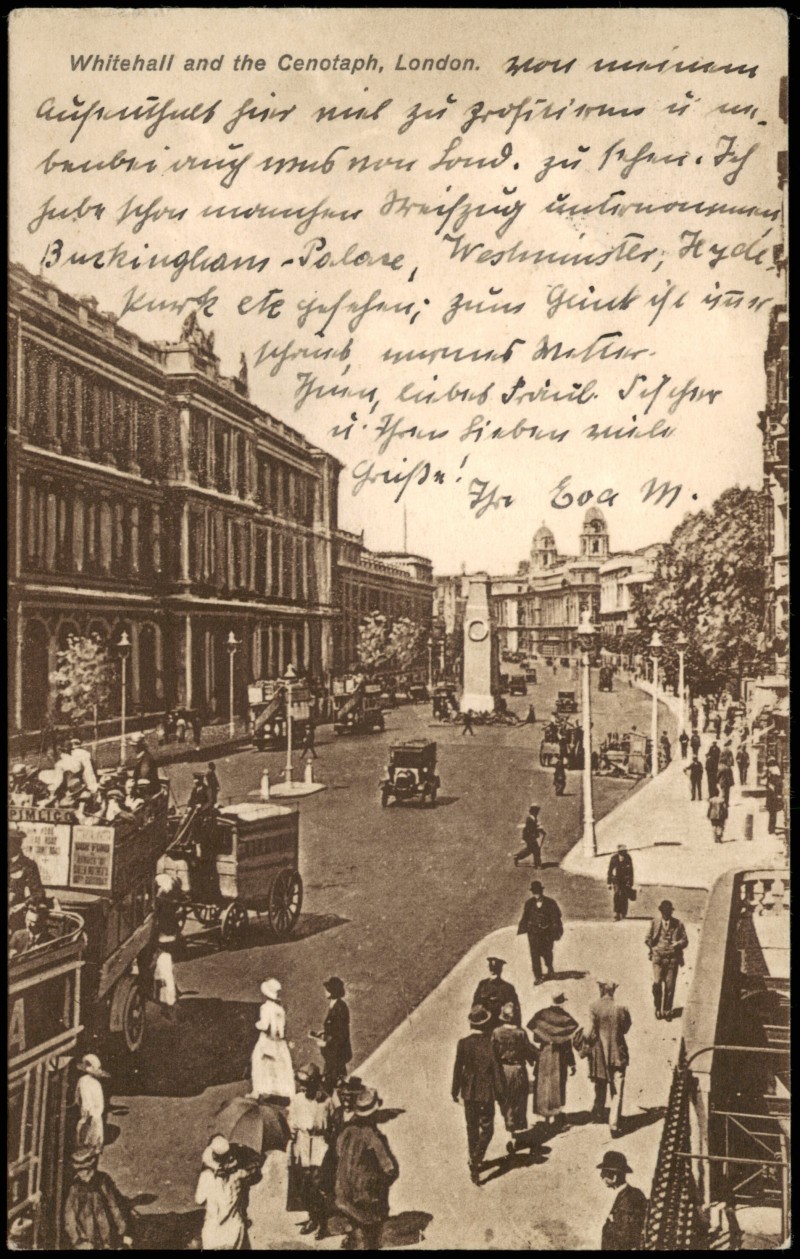 Whitehall and the Cenotaph, London.
von meinem
Aufenthalt hier viel zu profitieren u. ne-
benbei auch etwas von Lond. zu sehen. Ich
habe schon manchen Streifzug unternommen
Buckingham-Palace, Westminster, Hyde-
Park etc gesehen; zum Glück ist immer
schönes, warmes Wetter.
Ihnen, liebes Fräul. Fischer
u. Ihren Lieben viele
Grüße!
Ihre Eva M.
PIMLICO